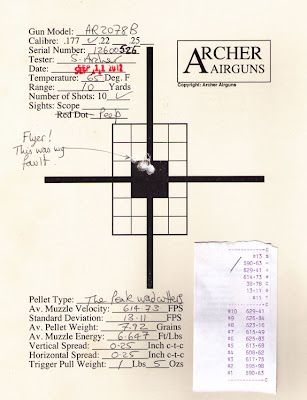 Gun Model: AR2078B
Calibre: .177 ✓ .22 .25
Serial Number: 12600526
Tester: S. Archer
Date: SEP 11 2012
Temperature: 65 Deg. F
Range: 10 Yards
Number of Shots: 10 ✓
Sights: Scope
Red Dot - Peep
ARCHER
AIRGUNS
Copyright: Archer Airguns
Flyer!
This was my
fault
Pellet Type: The Peak wadcutters
Av. Muzzle Velocity: 614.73 FPS
Standard Deviation: 13.11 FPS
Av. Pellet Weight: 7.92 Grains
Av. Muzzle Energy: 6.647 Ft/Lbs
Vertical Spread: 0.25 Inch c-t-c
Horizontal Spread: 0.25 Inch c-t-c
Trigger Pull Weight: 1 Lbs 5 Ozs
590-63
629-41
614-73
38-78
13-11
#10 629-41
#5 613-68
#4 608-62
#3 617-75
#1 590-63